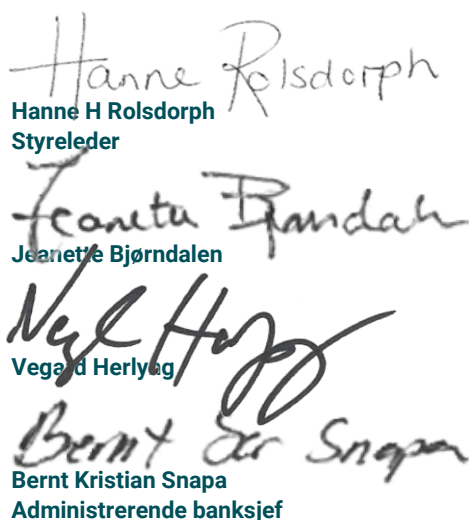 Hanne Rolsdorph
Hanne H Rolsdorph
Styreleder
Jeanette Bjørndalen
Jeanette Bjørndalen
Vegard Herlyng
Bernt Snapa
Bernt Kristian Snapa
Administrerende banksjef